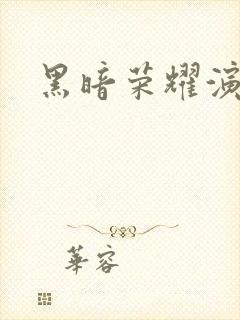 黑暗荣耀演
華容